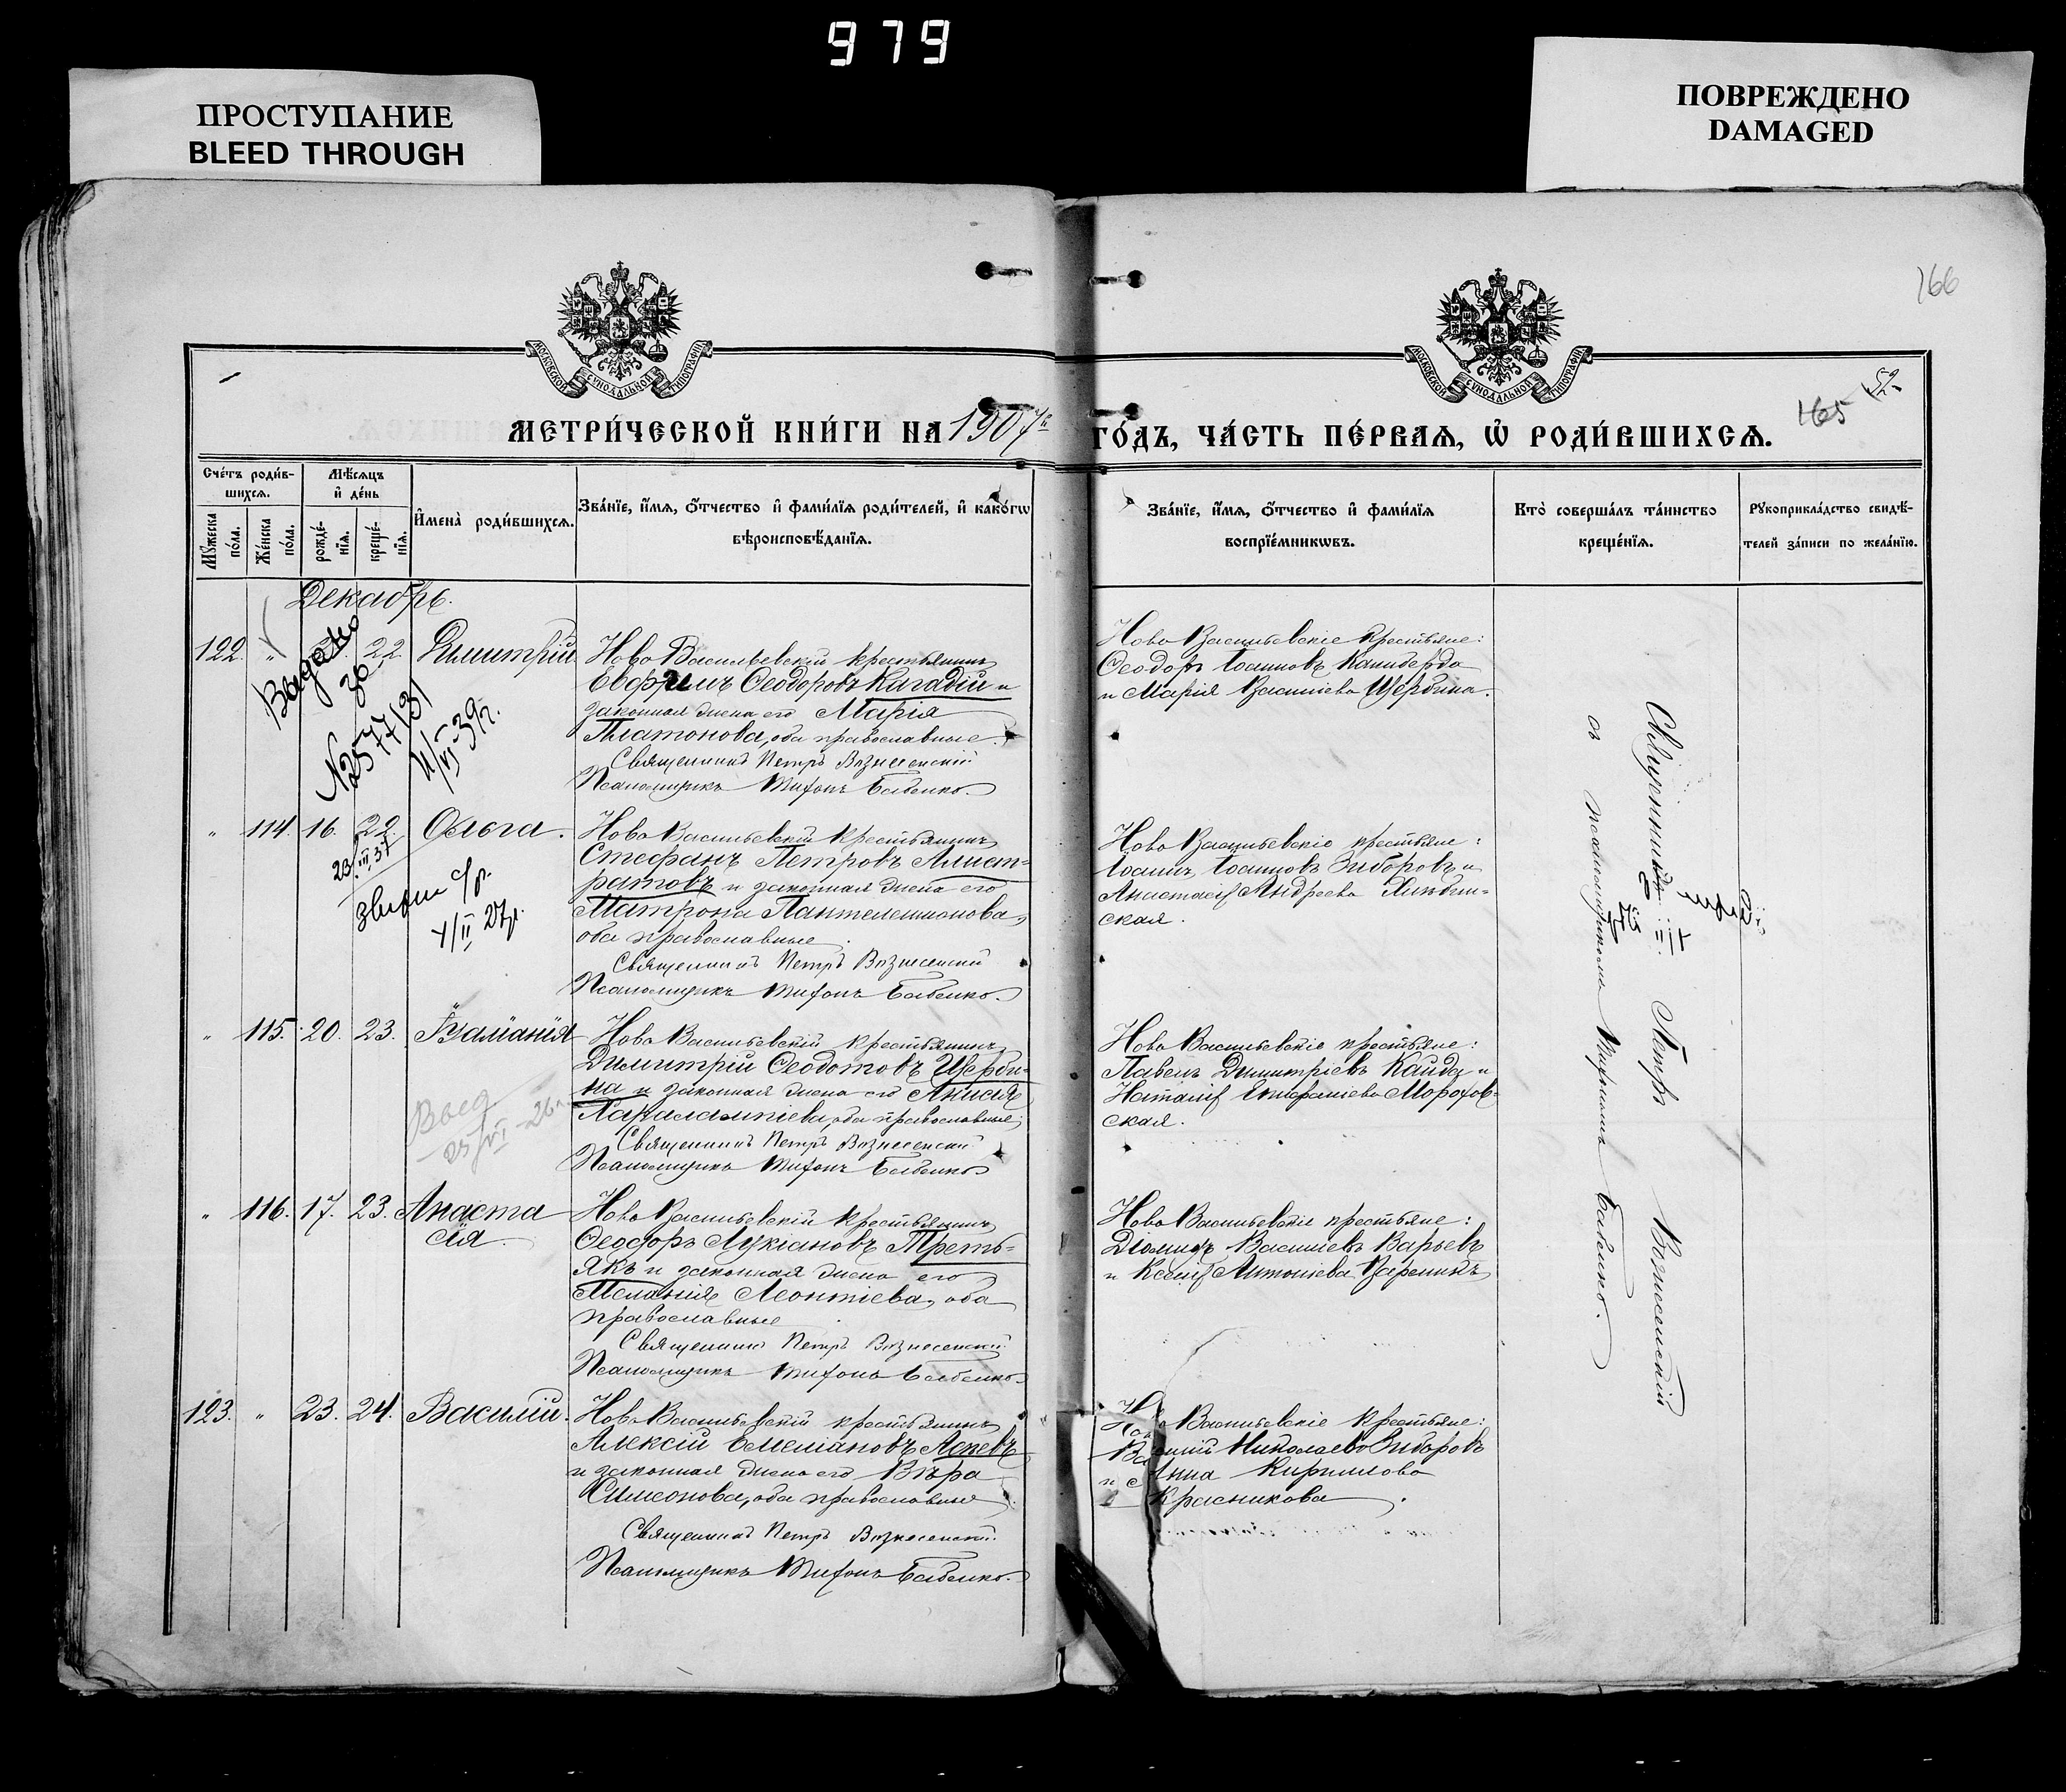 979
ПРОСТУПАНИЕ
BLEED THROUGH
ПОВРЕЖДЕНО
DAMAGED
166
МОСКОВСКОЙ СѴНОДАЛЬНОЙ ТИПОГРАФІИ
МОСКОВСКОЙ СѴНОДАЛЬНОЙ ТИПОГРАФІИ
165
52
МЕТРИ́ЧЕСКОЙ КНИ́ГИ НА 1907 ГО́ДЪ, ЧА́СТЬ ПЕ́РВАѦ, Ѡ҆ РОДИ́ВШИХСѦ.
Сче́тъ роди́в-
шихсѧ.
Мѣ́сѧцъ
и҆ де́нь
Мꙋ́жеска по́ла.
Же́нска по́ла.
рожде́-
нїѧ.
креще́-
нїѧ.
И҆мена̀ роди́вшихсѧ.
Зва́нїе, и҆́мѧ, ѻ҆́тчество и҆ фами́лїѧ роди́телей, и҆ како́гѡ
вѣроисповѣ́данїѧ.
Зва́нїе, и҆́мѧ, ѻ҆́тчество и҆ фами́лїѧ
воспрїе́мникѡвъ.
Кто̀ соверша́лъ та́инство
креще́нїѧ.
Рꙋкоприкла́дство свидѣ́-
телей за́писи по жела́нїю.
Декабрь.
122. " 22 Димитрій
Ново Васильевскій крестьянинъ
Евфимъ Ѳеодоровъ Кагадій и
законная жена его Марія
Платонова, оба православные.
Священникъ Петръ Вознесенскій
Псаломщикъ Тихонъ Бабенко.
Ново Васильевскіе крестьяне:
Ѳеодоръ Іоанновъ Калиберда
и Марія Васильева Щербина.
Выдано
№ 2577/31
11/VI 39 г.
" 114. 16. 22. Ольга.
Ново Васильевскій крестьянинъ
Стефанъ Петровъ Алист-
ратовъ и законная жена его
Матрона Пантелеимонова,
оба православные.
Священникъ Петръ Вознесенскій
Псаломщикъ Тихонъ Бабенко.
Ново Васильевскіе крестьяне:
Іоаннъ Іоанновъ Зиборовъ и
Андреева
ская.
23.III.37
" 115. 20. 23. Іуліанія
Ново Васильевскій крестьянинъ
Димитрій Ѳеодотовъ Щерби-
на и законная жена его Анисія
Харалампіева, оба православные,
Священникъ Петръ Вознесенскій
Псаломщикъ Тихонъ Бабенко
Ново Васильевскіе крестьяне:
Павелъ Димитріевъ Кайда и
Епифаніева Морохов-
ская.
" 116. 17. 23. Анаста
сія.
Ново Васильевскій крестьянинъ
Ѳеодоръ Лукіановъ Треть-
якъ и законная жена его
Меланія Леонтіева, оба
православные
Священникъ Петръ Вознесенскій
Псаломщикъ Тихонъ Бабенко
Ново Васильевскіе крестьяне:
Діомидъ Васильевъ
и Антоніева
123. " 23. 24. Василій.
Ново Васильевскій крестьянинъ
Алексій Емеліановъ Аспевъ
и законная жена его Вѣра
Симеонова, оба православные
Священникъ Петръ Вознесенскій
Псаломщикъ Тихонъ Бабенко.
Ново Васильевскіе крестьяне:
Николаевъ Зиборовъ
и Анна Кириллова
Красникова.
Священникъ Петръ Вознесенскій
съ псаломщикомъ Тихономъ Бабенко.